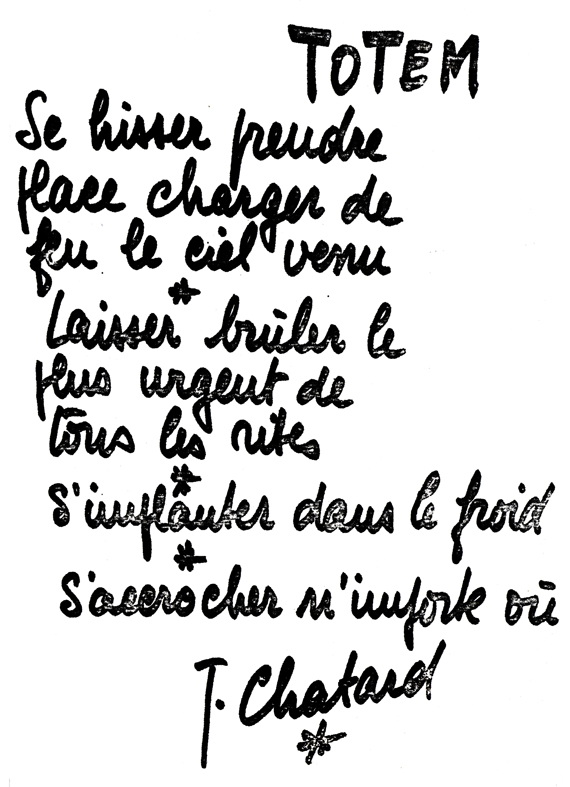 TOTEM
Se hisser prendre
place charger de
feu le ciel venu
*
Laisser brûler le
plus urgent de
tous les rites
*
S'implanter dans le froid
*
S'accrocher n'importe où
J. Chatard
*